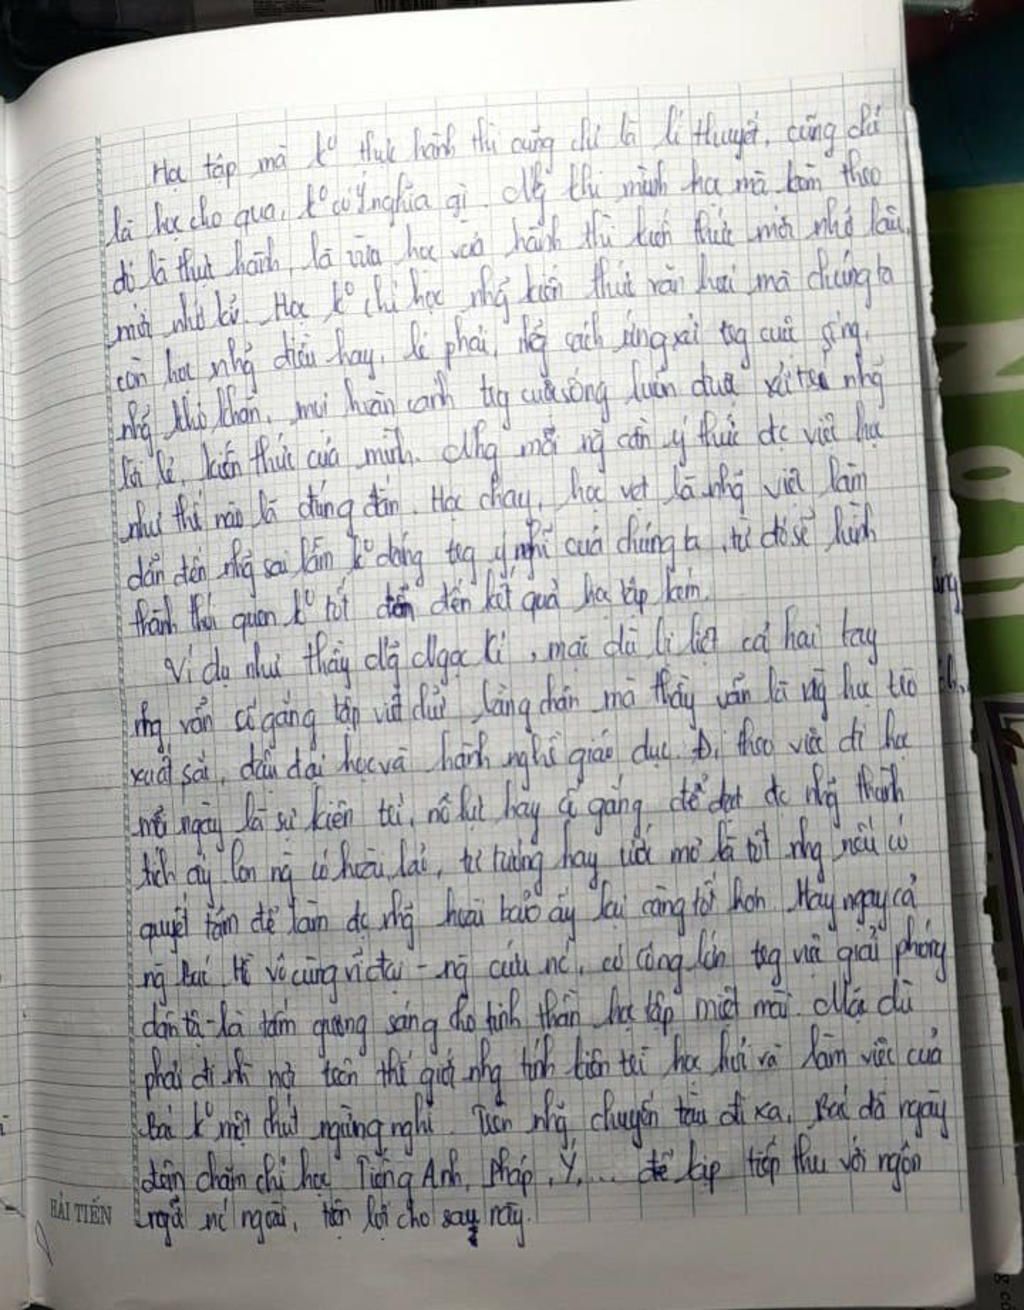 Học tập mà k° thực hành thì cũng chỉ là lí thuyết, cũng chỉ
là học cho qua, k° có ý nghĩa gì. Ng thi mình học mà làm theo
đó là thực hành, là vừa học vừa hành thì kiến thức mới nhớ lâu,
mới nhớ kĩ. Học k° chỉ học nhg kiến thức văn hoá mà chúng ta
còn học nhg điều hay, lẽ phải, nhg cách ứng xử tṛg cuộc sống.
nhg khó khăn, mọi hoàn cảnh tṛg cuộc sống luôn đưa nhg
lời lẽ, kiến thức của mình. Nhg mỗi ng cần ý thức đc việc học
như thế nào là đúng đắn. Học chay, học vẹt là nhg việc làm
dẫn đến nhg sai lầm k° đáng tṛg ý nghĩ của chúng ta, từ đó sẽ hình
thành thói quen k° tốt dẫn đến kết quả học tập kém.
Ví dụ như thầy Ng Ngọc Kí, mặc dù bị liệt cả hai tay
nhg vẫn cố gắng tập viết chữ bằng chân mà thầy vẫn là ng học trò
xuất sắc, đậu đại học và hành nghề giáo dục. Đi theo việc đi học
mỗi ngày là sự kiên trì, nỗ lực hay cố gắng để đạt đc nhg thành
tích ấy. Con ng có hoài bảo, tư tưởng hay ước mơ là tốt nhg nếu có
quyết tâm để làm đc nhg hoài bảo ấy lại càng tốt hơn. Hay ngay cả
ng Bác Hồ vô cùng vĩ đại - ng cứu nc, có công lớn tṛg việc giải phóng
dân tộc - là tấm gương sáng cho tinh thần học tập miệt mài. Mặc dù
phải đi nơi trên thế giới nhg tính kiên trì học hỏi và làm việc của
Bác k° một chút ngừng nghỉ. Trên nhg chuyến tàu đi xa, Bác đã ngày
đêm chăm chỉ học Tiếng Anh, Pháp, Ý,... để kịp tiếp thu với ngôn
ngữ nc ngoài, tiện lợi cho sau này.
HẢI TIẾN